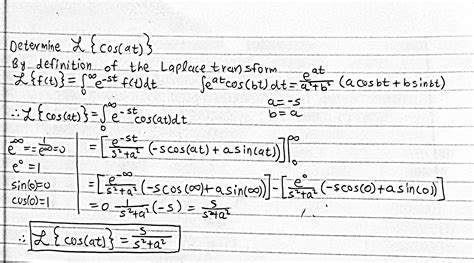 Determine ℒ{cos(at)}
By definition of the Laplace transform
ℒ{f(t)} = ∫₀^∞ e^-st f(t)dt    ∫e^at cos(bt)dt = e^at/(a²+b²) (a cosbt + b sinbt)
a = -s
b = a
∴ ℒ{cos(at)} = ∫₀^∞ e^-st cos(at)dt
e^-∞ = 1/e^∞ = 0    = [e^-st/(s²+a²) (-s cos(at) + a sin(at))]|₀^∞
e^0 = 1
sin(0) = 0    = [e^-∞/(s²+a²) (-s cos(∞) + a sin(∞))] - [e^0/(s²+a²) (-s cos(0) + a sin(0))]
cos(0) = 1    = 0 1/(s²+a²) (-s) = s/(s²+a²)
∴ ℒ{cos(at)} = s/(s²+a²)